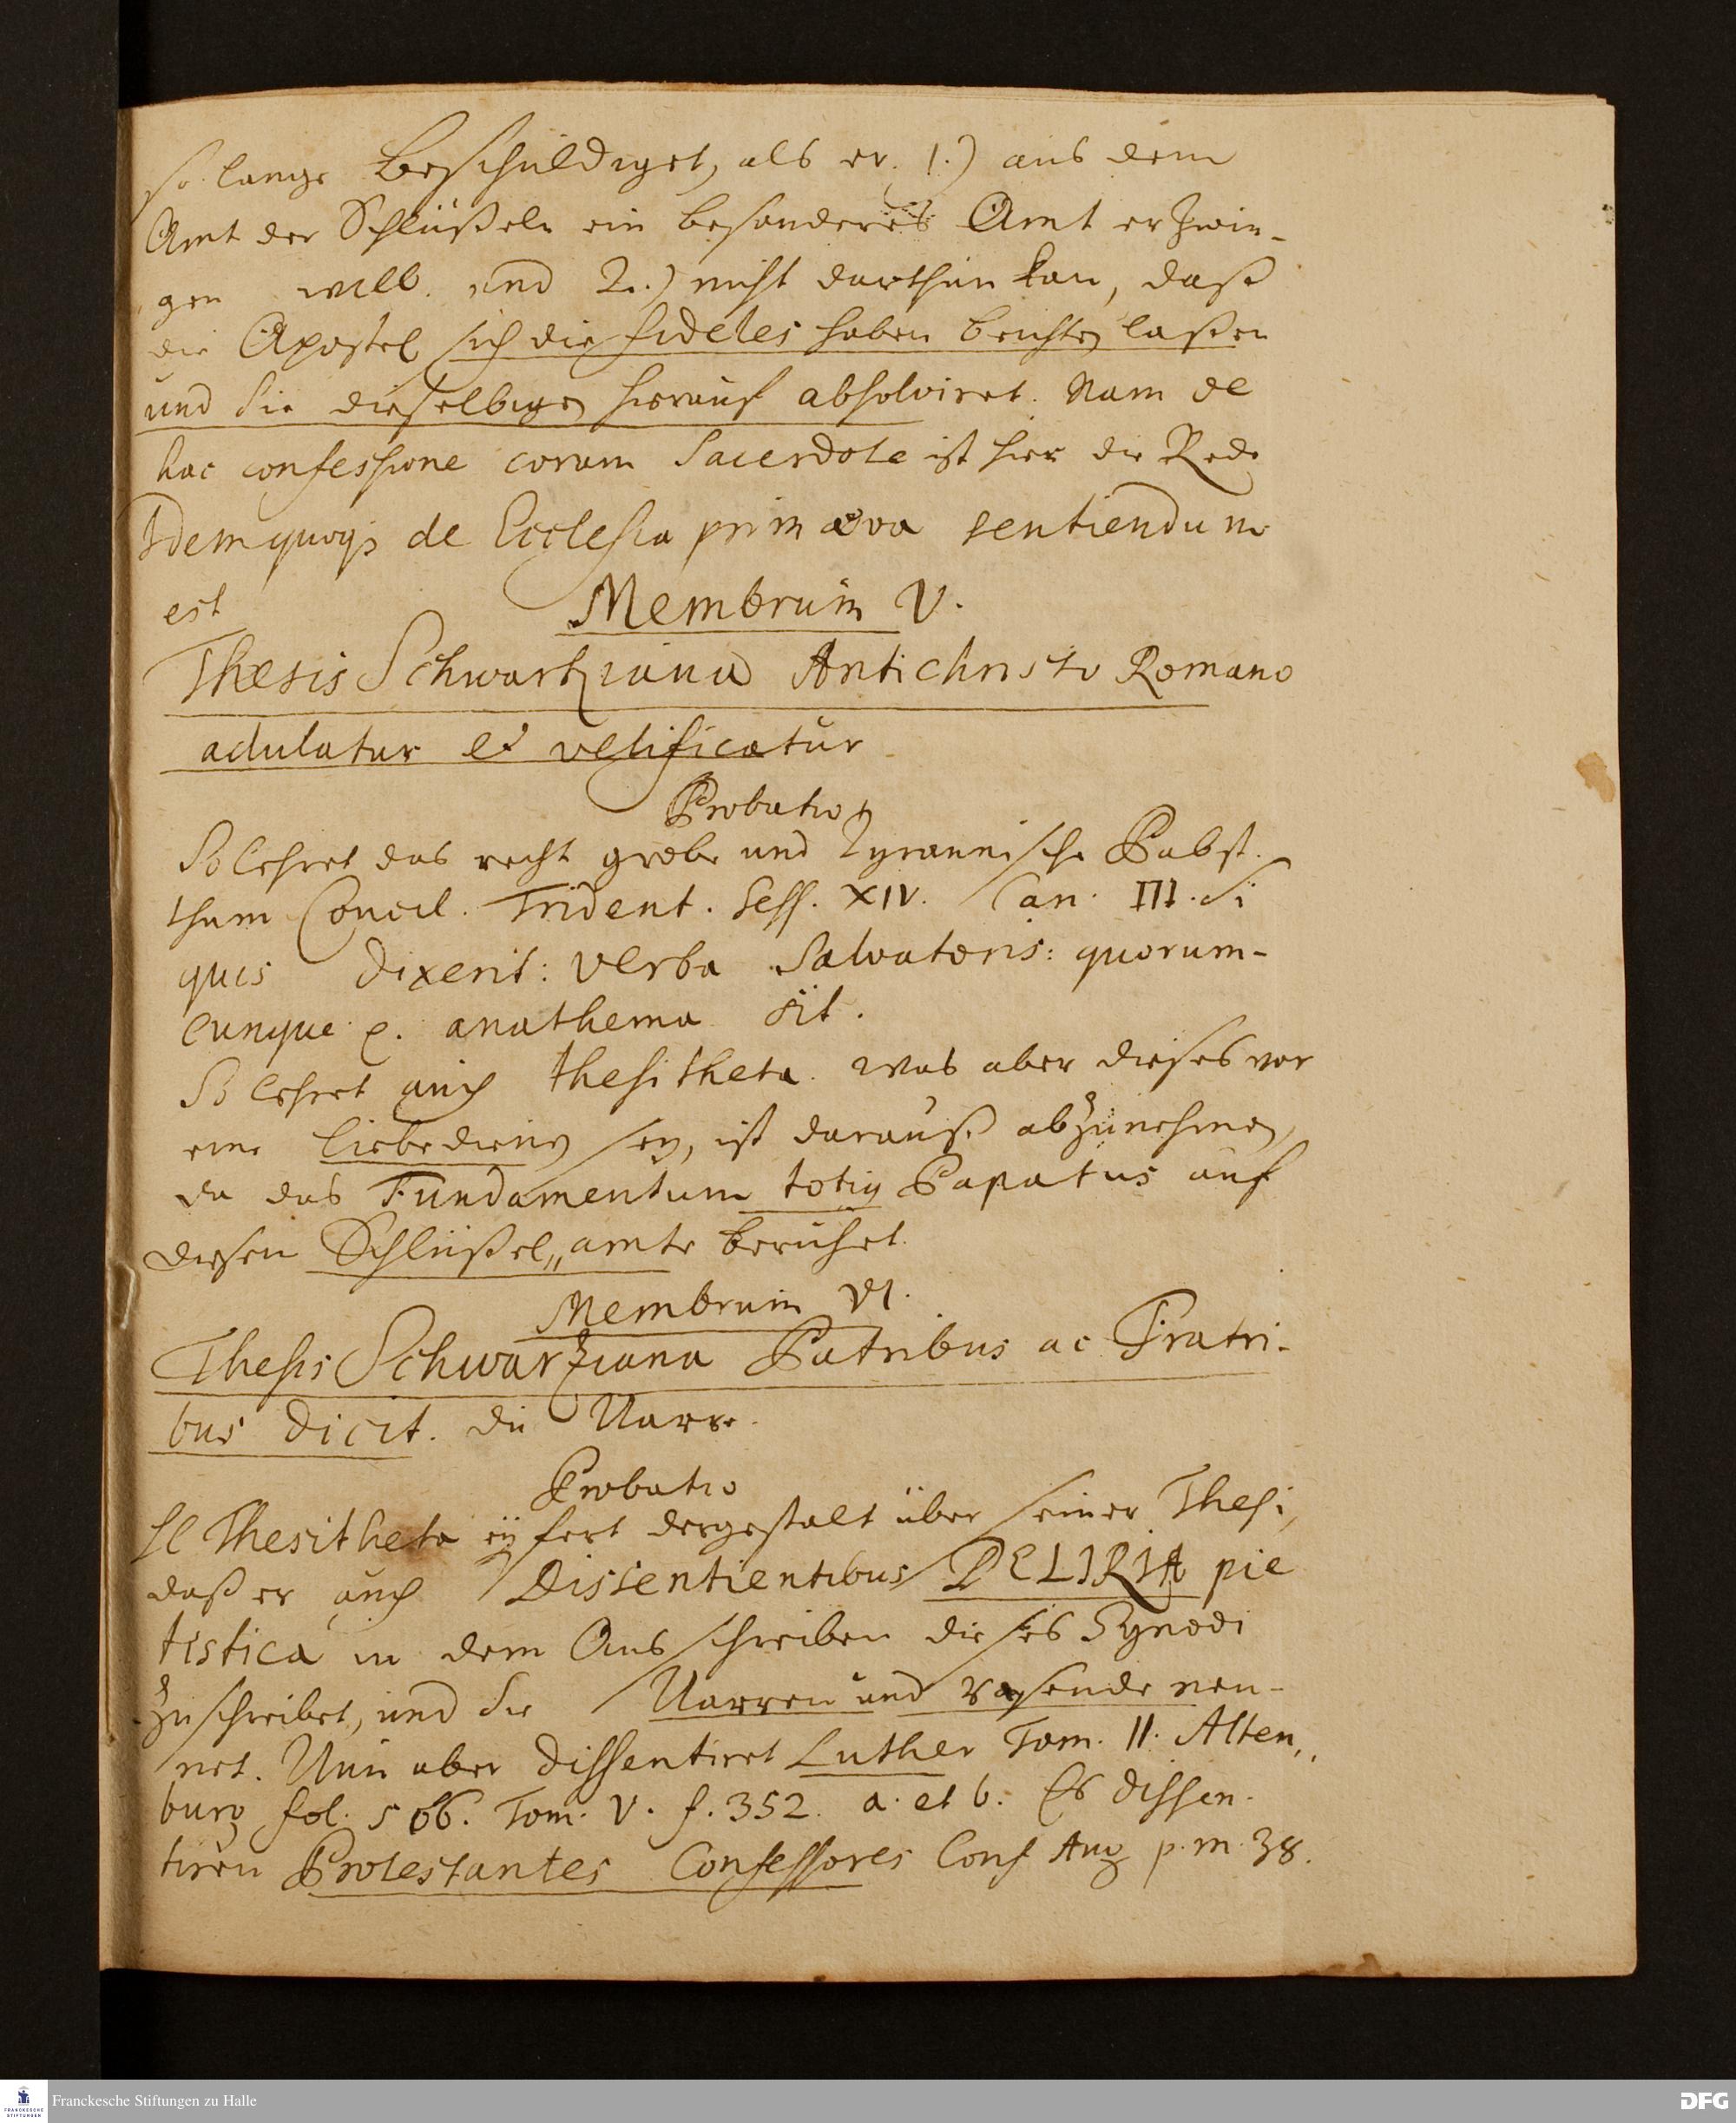 so lange beschuldiget, als er. 1.) aus dem
Amt der Schlüßeln ein besonderes Amt erzwin-
gen will. und 2.) nicht darthun kan, daß
die Apostel sich die fideles haben beichten laßen
und Sie dieselbigen hierauf absolviret. Nam de
hac confessione coram Sacerdote ist hier die Rede
Idem quoq; de Ecclesia primæva sentiendum
est
Membrum V.
Thesis Schwartziana Antichristo Romano
adulatur et velificatur
Probatio
So lehret das recht grobe und Tyrannische Pabst-
thum Concil. Trident. Sess. XIV. Can. III. Si
quis dixerit: verba Salvatoris: quorum-
cunque p. anathema sit.
So lehret auch Thesitheta. Was aber dieses vor
eine Liebedieng sey, ist darauß abzunehmen,
da das Fundamentum totig Papatus auf
diesen Schlüßel„amte beruhet.
Membrum VI.
Thesis Schwarziana Patribus ac Fratri-
bus dicit. du Narre.
Probatio
H Thesitheta eÿfert dergestalt über seiner Thesi,
daß er auch Dissentientibus DELIRIA pie
tistica in dem Ausschreiben dieses Synodi
zuschreibet, und Sie Narren und rasende nen-
net. Nun aber dissentiret Luther Tom. II. Alten„
burg fol. 506. Tom. V. f. 352. a. et b. Es dissen-
tiren Protestantes Confessores Conf Aug p. m. 38.
Franckesche Stiftungen zu Halle
FRANCKESCHE
STIFTUNGEN
DFG